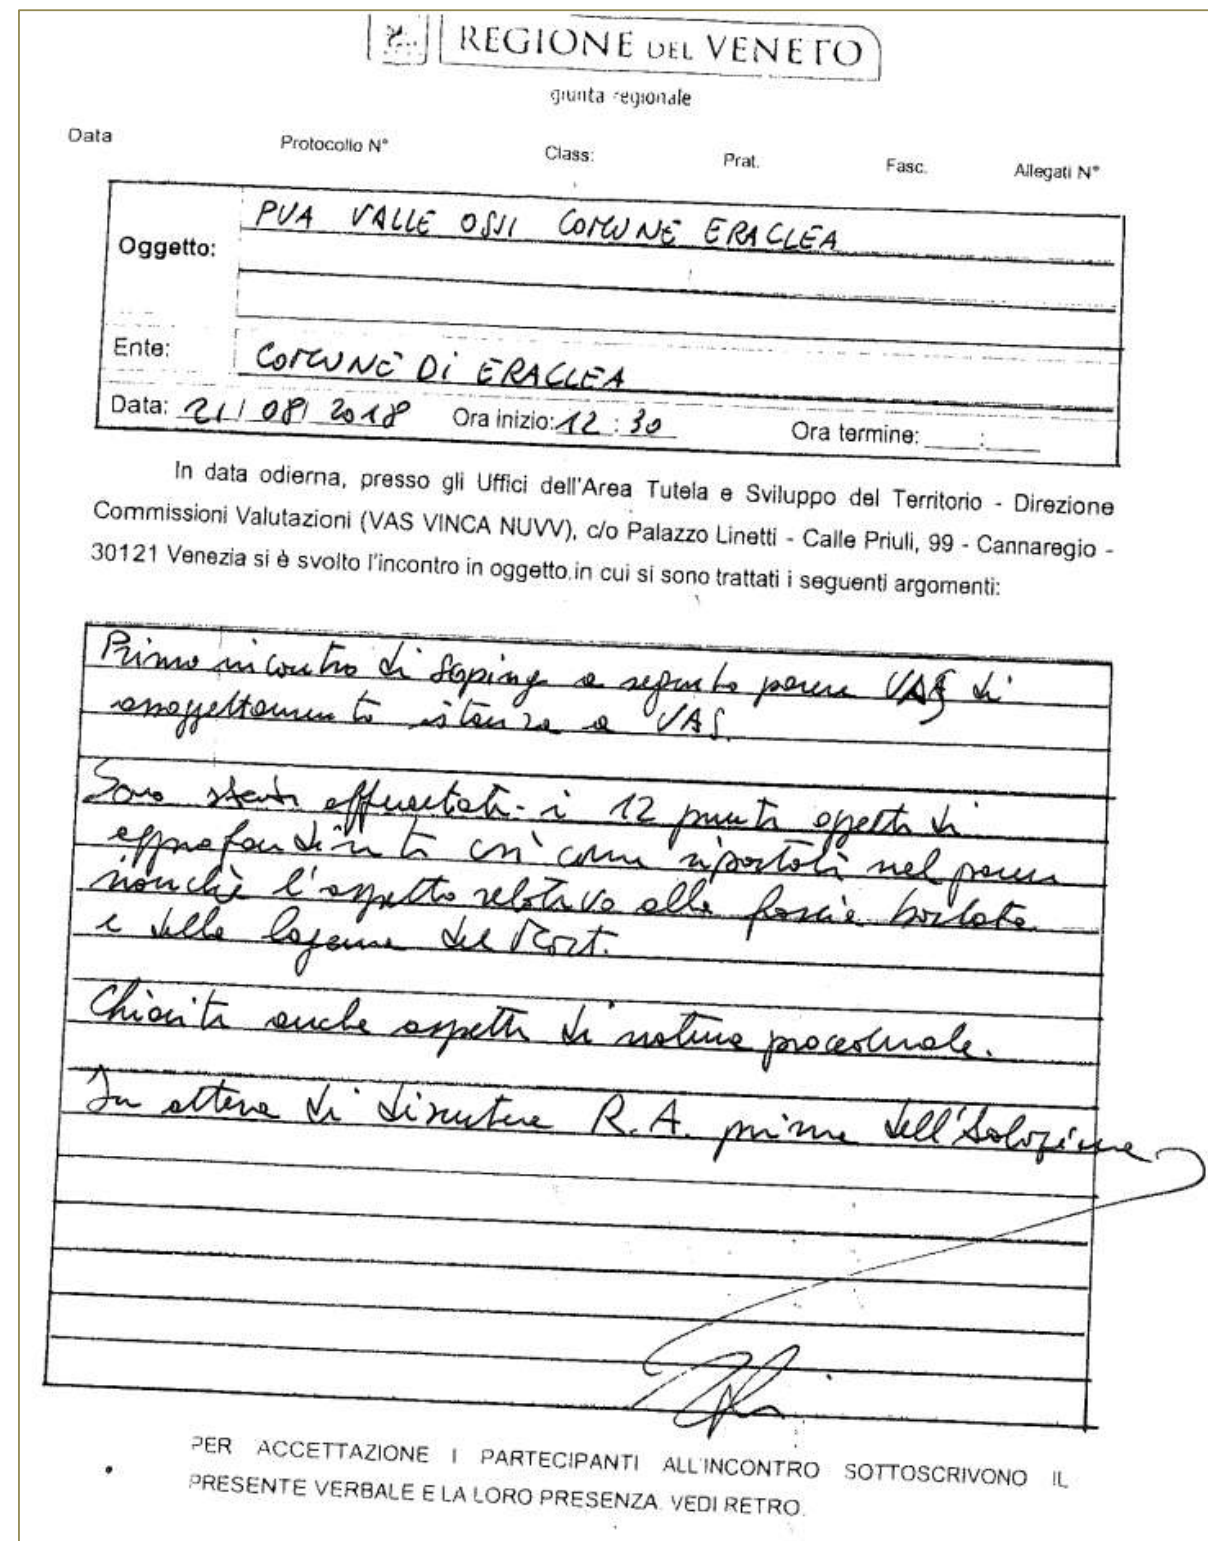 REGIONE DEL VENETO
giunta regionale
Data Protocollo N° Class: Prat. Fasc. Allegati N°
Oggetto: PUA VALLE OSSI COMUNE ERACLEA
Ente: COMUNE DI ERACLEA
Data: 21/08/2018 Ora inizio: 12:30 Ora termine: ____:____
In data odierna, presso gli Uffici dell'Area Tutela e Sviluppo del Territorio - Direzione
Commissioni Valutazioni (VAS VINCA NUVV), c/o Palazzo Linetti - Calle Priuli, 99 - Cannaregio -
30121 Venezia si è svolto l'incontro in oggetto in cui si sono trattati i seguenti argomenti:
Primo incontro di scoping a seguito parere VAS di
assoggettamento istanza a VAS.
Sono stati i 12 punti oggetto di
approfondimento così come riportati nel parere
nonchè l'aspetto relativo alla fascia
e della laguna del Mort.
Chiariti anche aspetti di natura procedurale.
In attesa di discutere R.A. prima dell'adozione
PER ACCETTAZIONE I PARTECIPANTI ALL'INCONTRO SOTTOSCRIVONO IL
PRESENTE VERBALE E LA LORO PRESENZA. VEDI RETRO.